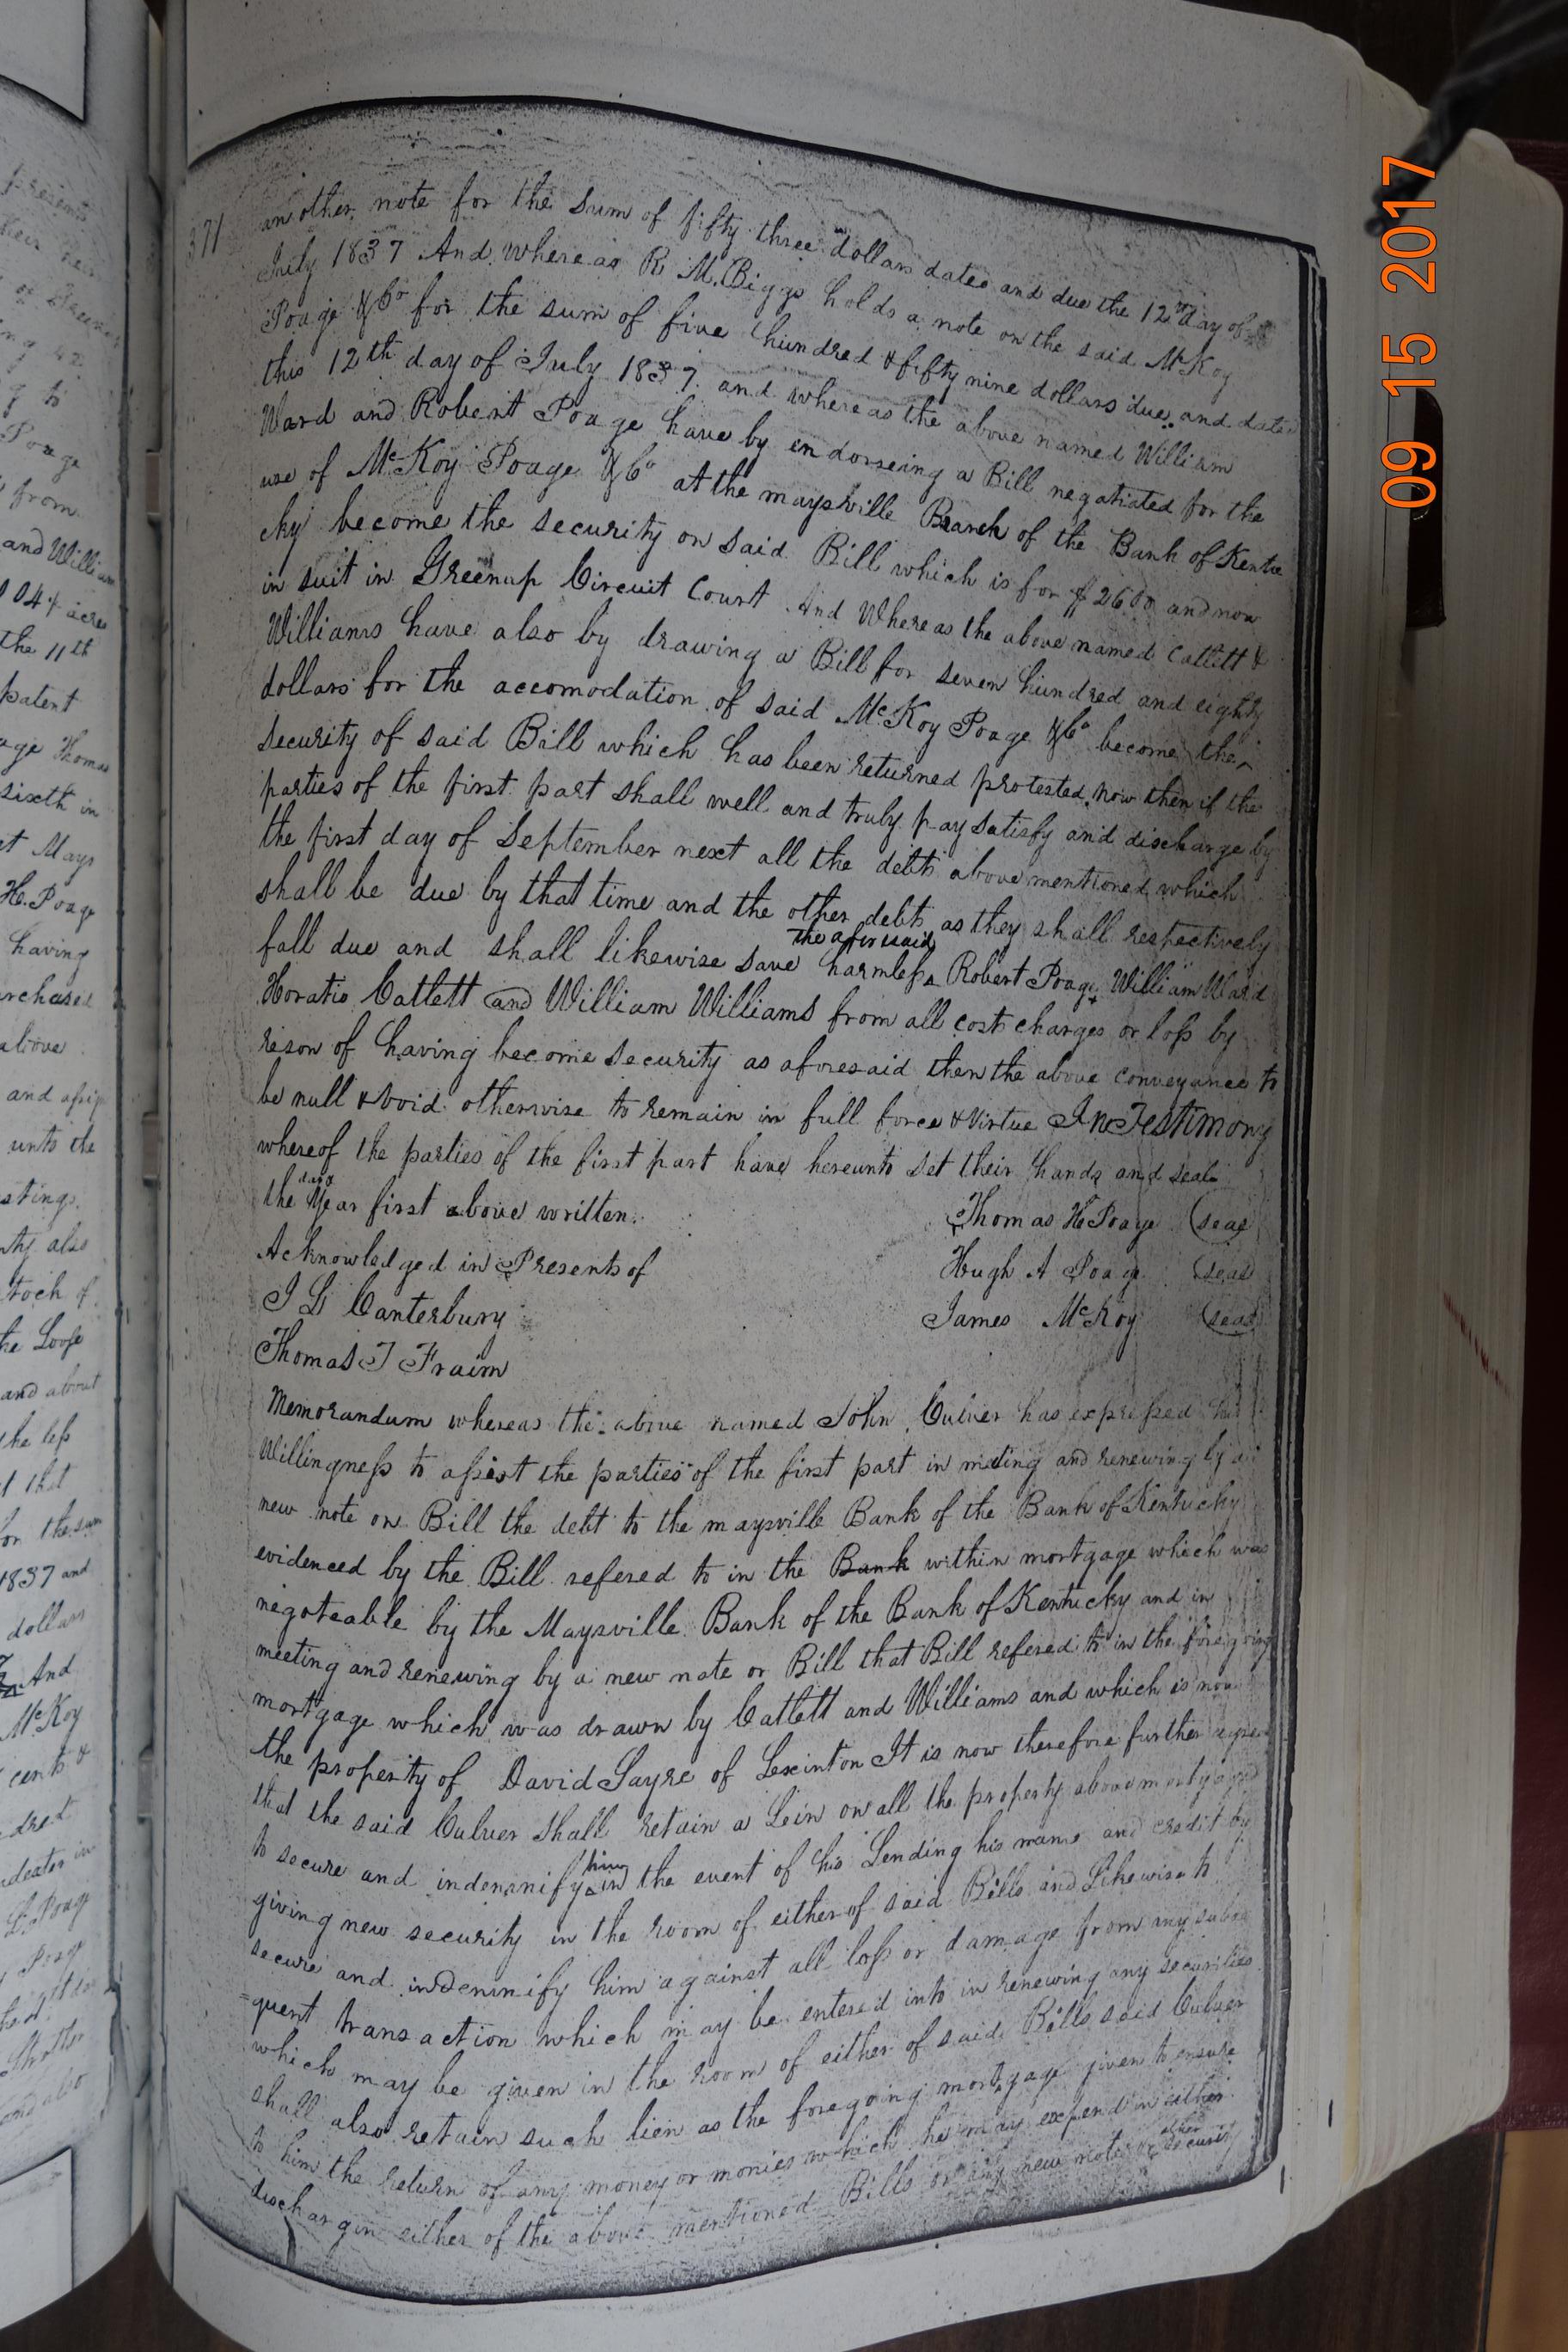 371
another note for the Sum of fifty three dollars dated and due the 12th day of
July 1837 And whereas R. M. Biggs holds a note on the said McKoy
Poage & Co for the sum of five hundred & fifty nine dollars due and dated
this 12th day of July 1837. and whereas the above named William
Ward and Robert Poage have by endorseing a Bill negatiated for the
use of McKoy Poage & Co at the maysville Branch of the Bank of Kentu
cky become the security on said Bill which is for $2600 and now
in suit in Greenup Circuit Court And Whereas the above named Catlett &
Williams have also by drawing a Bill for seven hundred and eighty
dollars for the accomodation of said McKoy Poage & Co become the
security of said Bill which has been returned protested, now then if the
parties of the first part shall well and truly pay satisfy and discharge by
the first day of September next all the debts above mentioned which
shall be due by that time and the other debts as they shall respectively
fall due and shall likewise save harmless the aforesaid Robert Poage William Ward
Horatio Catlett and William Williams from all cost charges or loss by
reson of having become security as aforesaid then the above conveyance to
be null & void otherwise to remain in full force & virtue In Testimony
whereof the parties of the first part have hereunto set their hands and seals
the day & Year first above written.
Thomas H Poage (seal)
Acknowledged in Presents of
Hugh A Poage (seal)
J L Canterbury
James McKoy (seal)
Thomas J Fraim
Memorandum whereas the above named John Culver has expressed his
Willingness to assist the parties of the first part in meeting and renewing by a
new note or Bill the debt to the maysville Bank of the Bank of Kentucky
evidenced by the Bill refered to in the Bank within mortgage which was
negoteable by the Maysville Bank of the Bank of Kentucky and in
meeting and renewing by a new note or Bill that Bill refered to in the foregoing
mortgage which was drawn by Catlett and Williams and which is now
the property of David Sayre of Lexinton It is now therefore further agreed
that the said Culver shall retain a Lein on all the property above mortgaged
to secure and indemnify him in the event of his Lending his name and credit by
giving new security in the room of either of said Bills and Likewise to
secure and indemnify him against all loss or damage from any subse
=quent transaction which may be entered into in renewing any securities
which may be given in the room of either of said Bills said Culver
shall also retain such lien as the foregoing mortgage given to ensure
to him the return of any money or monies which he may expend in either
dischargin either of the above mentioned Bills or any new note or other security
09 15 2017
presents
and William
104 4 acres
the 11th
patent
age Thomas
sixth in
st Mays
H. Poage
having
above
and assig
unto the
nty also
the Loose
and about
the less
t that
1837 and
dollars
And
McKoy
cents &